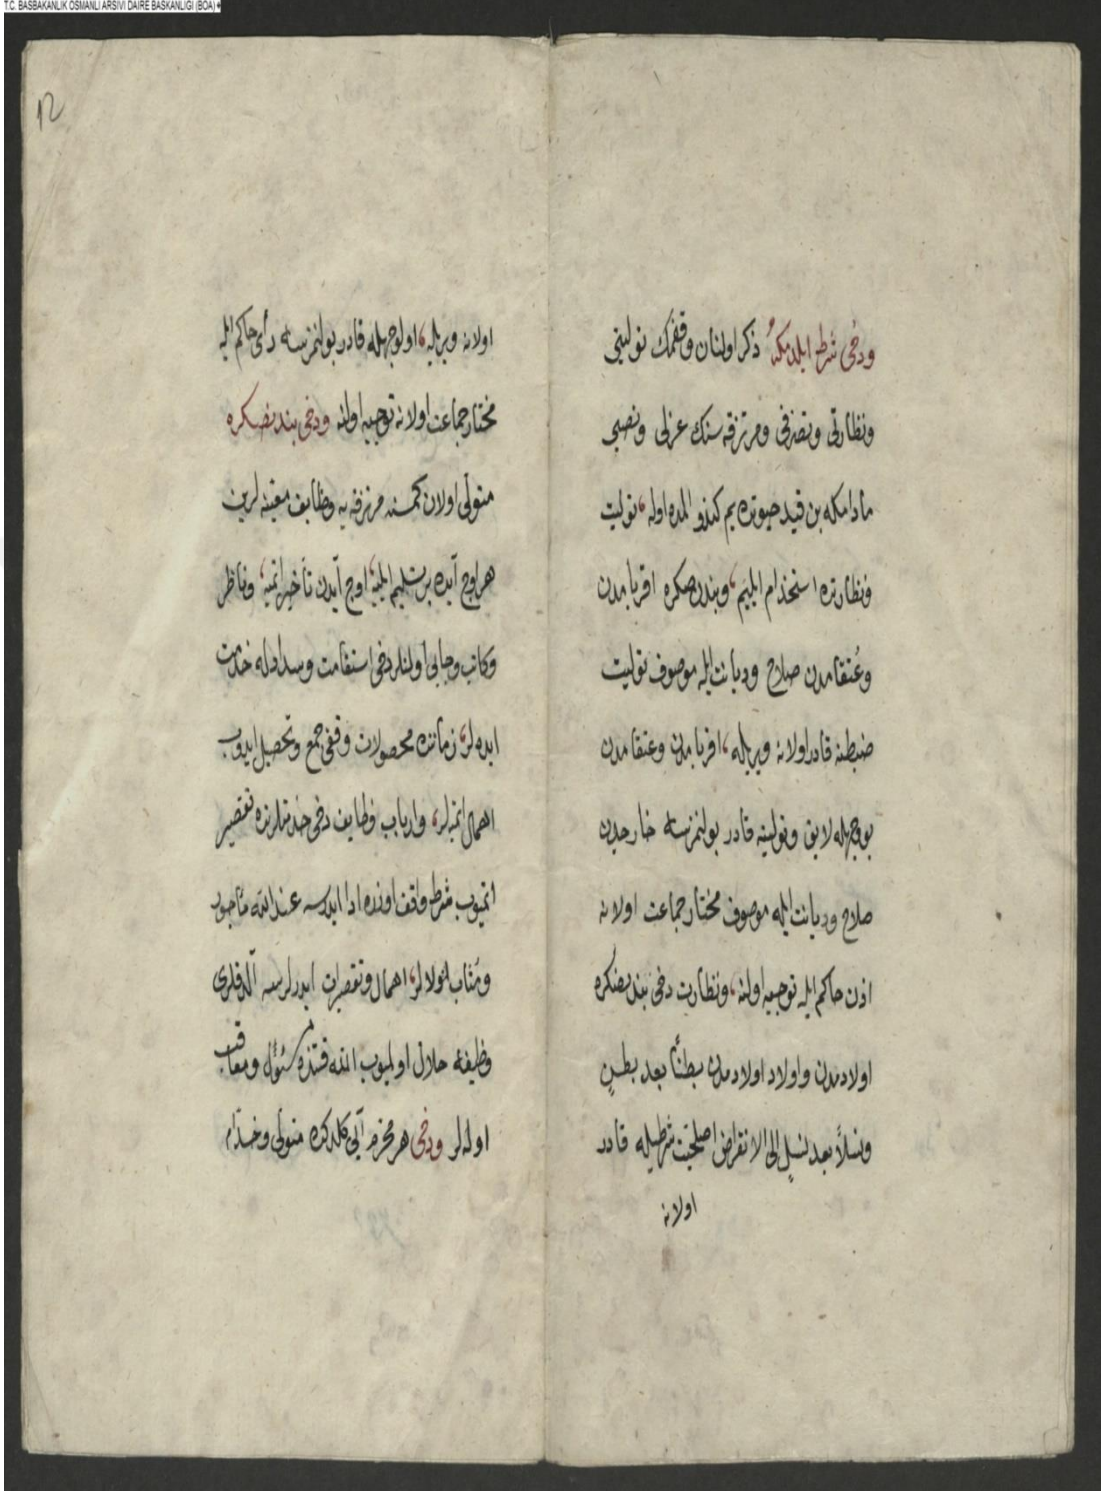 T.C. BASBAKANLIK OSMANLI ARSIVI DAIRE BASKANLIGI (BOA)
12
ودخى شرط ايلدمكه ذكر اولنان وقفمك توليتى
ونظارتى وتصرفى ومرتزقه سنك عزلى ونصبى
مادامكه بن قيد حيوتده يم كندو المده اوله، توليت
ونظارتده استخدام ايليم، وبندن صكره اقربامدن
وعُتقامدن صلاح وديانت ايله موصوف توليت
ضبطنه قادر اولانه ويريله، اقربامدن وعتقامدن
بو وجهله لايق وتوليته قادر بولنمزسه خارجدن
صلاح وديانت ايله موصوف مختار جماعت اولانه
اذن حاكم ايله توجيه اولنه، ونظارت دخى بندنصكره
اولادمدن واولاد اولادمدن بطناً بعد بطنٍ
ونسلاً بعد نسلٍ الى الانقراض اصلحيت شرطيله قادر
اولانه
اولانه ويريله، اول وجهله قادر بولنمزسه رأى حاكم ايله
مختار جماعت اولانه توجيه اولنه ودخى بندنصكره
متولى اولان كمسنه مرتزقه يه وظايف معينه لرين
هر اوچ آيده بر تسليم ايليه، اوچ آيدن تأخير اتميه، وناظر
وكاتب وجابى اولنلر دخى استقامت وسداد له خدمت
ايده لر، زماننده محصولات وقفى جمع وتحصيل ايدوب
اهمال اتميه لر، وارباب وظايف دخى خدمتلرنده تقصير
اتميوب شرط واقف اوزره ادا ايدرسه عند الله مأجور
ومُثاب اولالر، اهمال وتقصيرات ايدرلرسه آلدقلرى
وظيفه حلال اولميوب الله قتنده مسئول ومعاقب
اوله لر ودخى هر محرم آيى كلدكده متولى وخدام